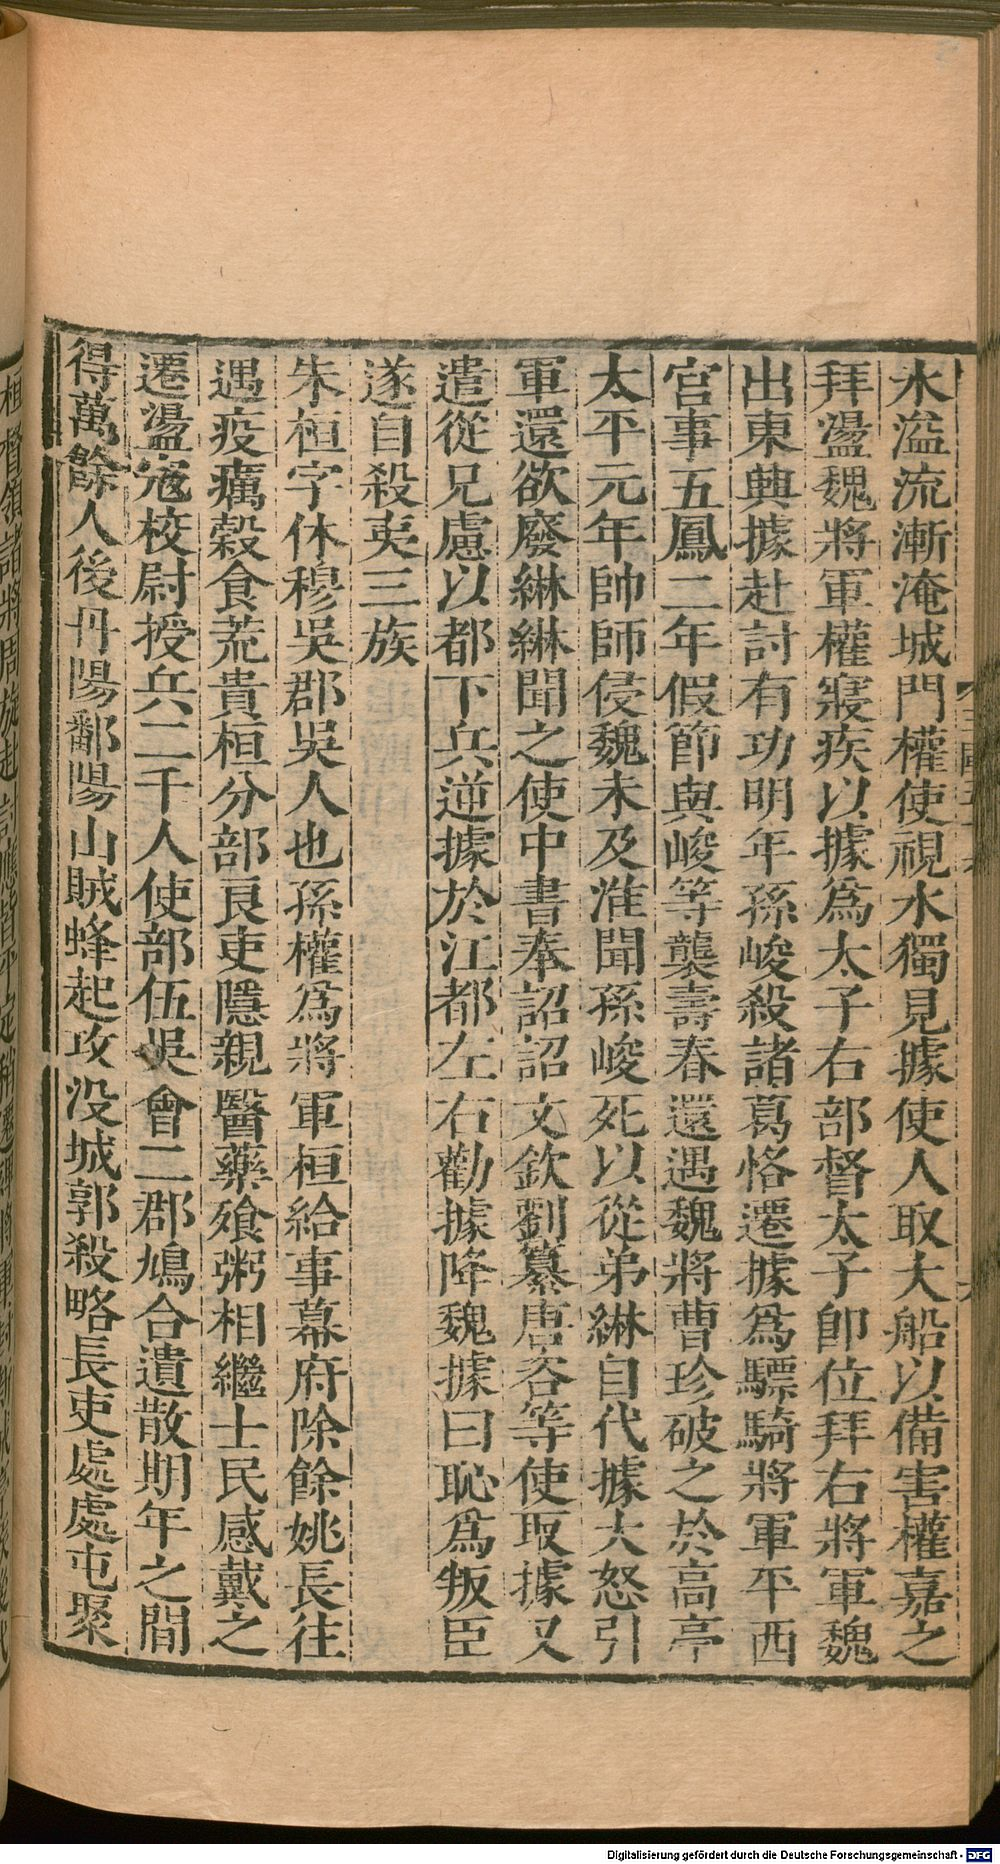 水溢流漸淹城門權使視水獨見據使人取大船以備害權嘉之
拜盪魏將軍權寢疾以據爲太子右部督太子卽位拜右將軍魏
出東興據赴討有功明年孫峻殺諸葛恪遷據爲驃騎將軍平西
宮事五鳳二年假節與峻等襲壽春還遇魏將曹珍破之於高亭
太平元年帥師侵魏未及淮聞孫峻死以從弟綝自代據大怒引
軍還欲廢綝綝聞之使中書奉詔詔文欽劉纂唐咨等使取據又
遣從兄慮以都下兵逆據於江都左右勸據降魏據曰恥爲叛臣
遂自殺夷三族
朱桓字休穆吳郡吳人也孫權爲將軍桓給事幕府除餘姚長往
遇疫癘穀食荒貴桓分部良吏隱親醫藥飱粥相繼士民感戴之
遷盪寇校尉授兵二千人使部伍吳會二郡鳩合遺散期年之間
得萬餘人後丹陽鄱陽山賊蜂起攻没城郭殺略長吏處處屯聚
桓督領諸將周旋赴討應皆平定稍遷裨將軍封新城亭侯後代
Digitalisierung gefördert durch die Deutsche Forschungsgemeinschaft - DFG